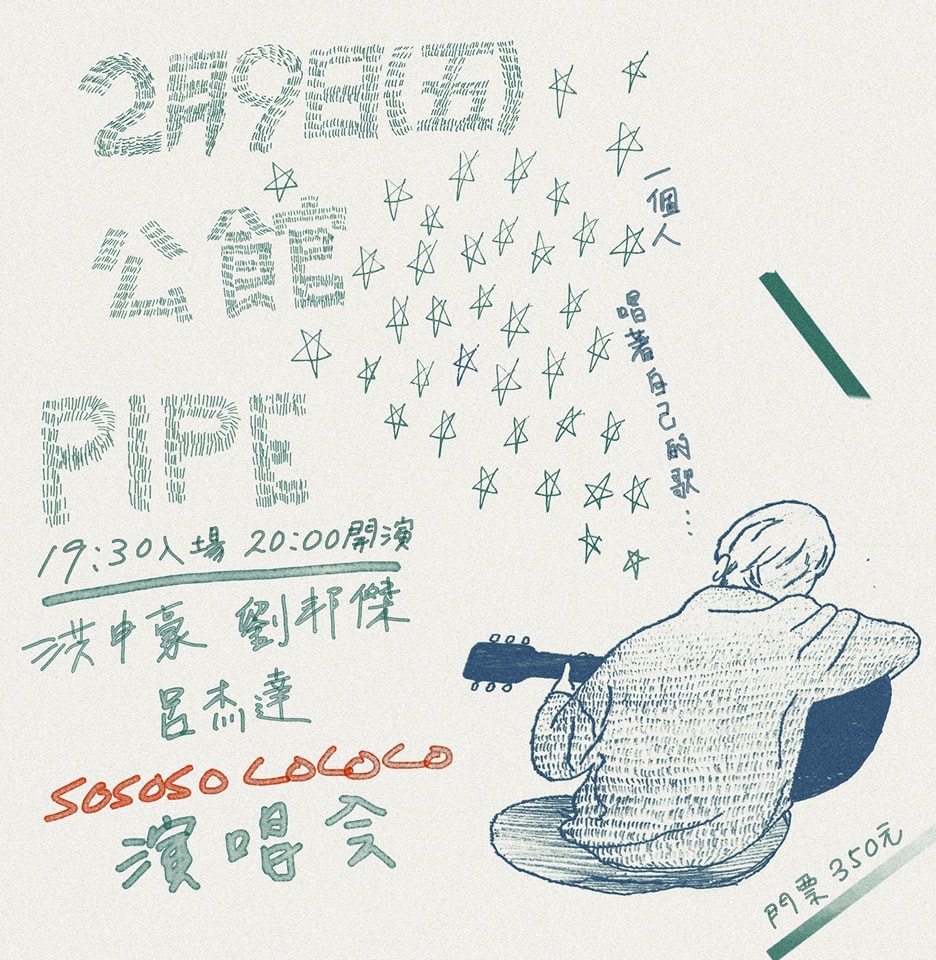 2月9日(五)
公館
PIPE
19:30入場 20:00開演
洪申豪 劉邦傑
呂杰達
SOSOSO LOLOLO
演唱会
一個人
唱著自己的歌...
門票 350元